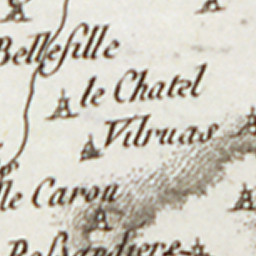 Bellefille
le Chatel
Vilruas
le Carou